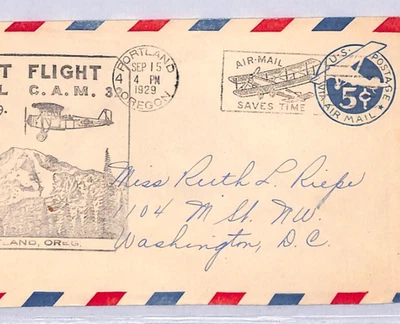 T FLIGHT
L C.A.M. 3
9.
LAND, OREG.
PORTLAND
4
SEP 15
4 PM
1929
OREGON
AIR-MAIL
SAVES TIME
U.S. POSTAGE
5¢
VIA AIR MAIL
Miss Ruth L. Riepe
1104 M St. NW.
Washington, D.C.